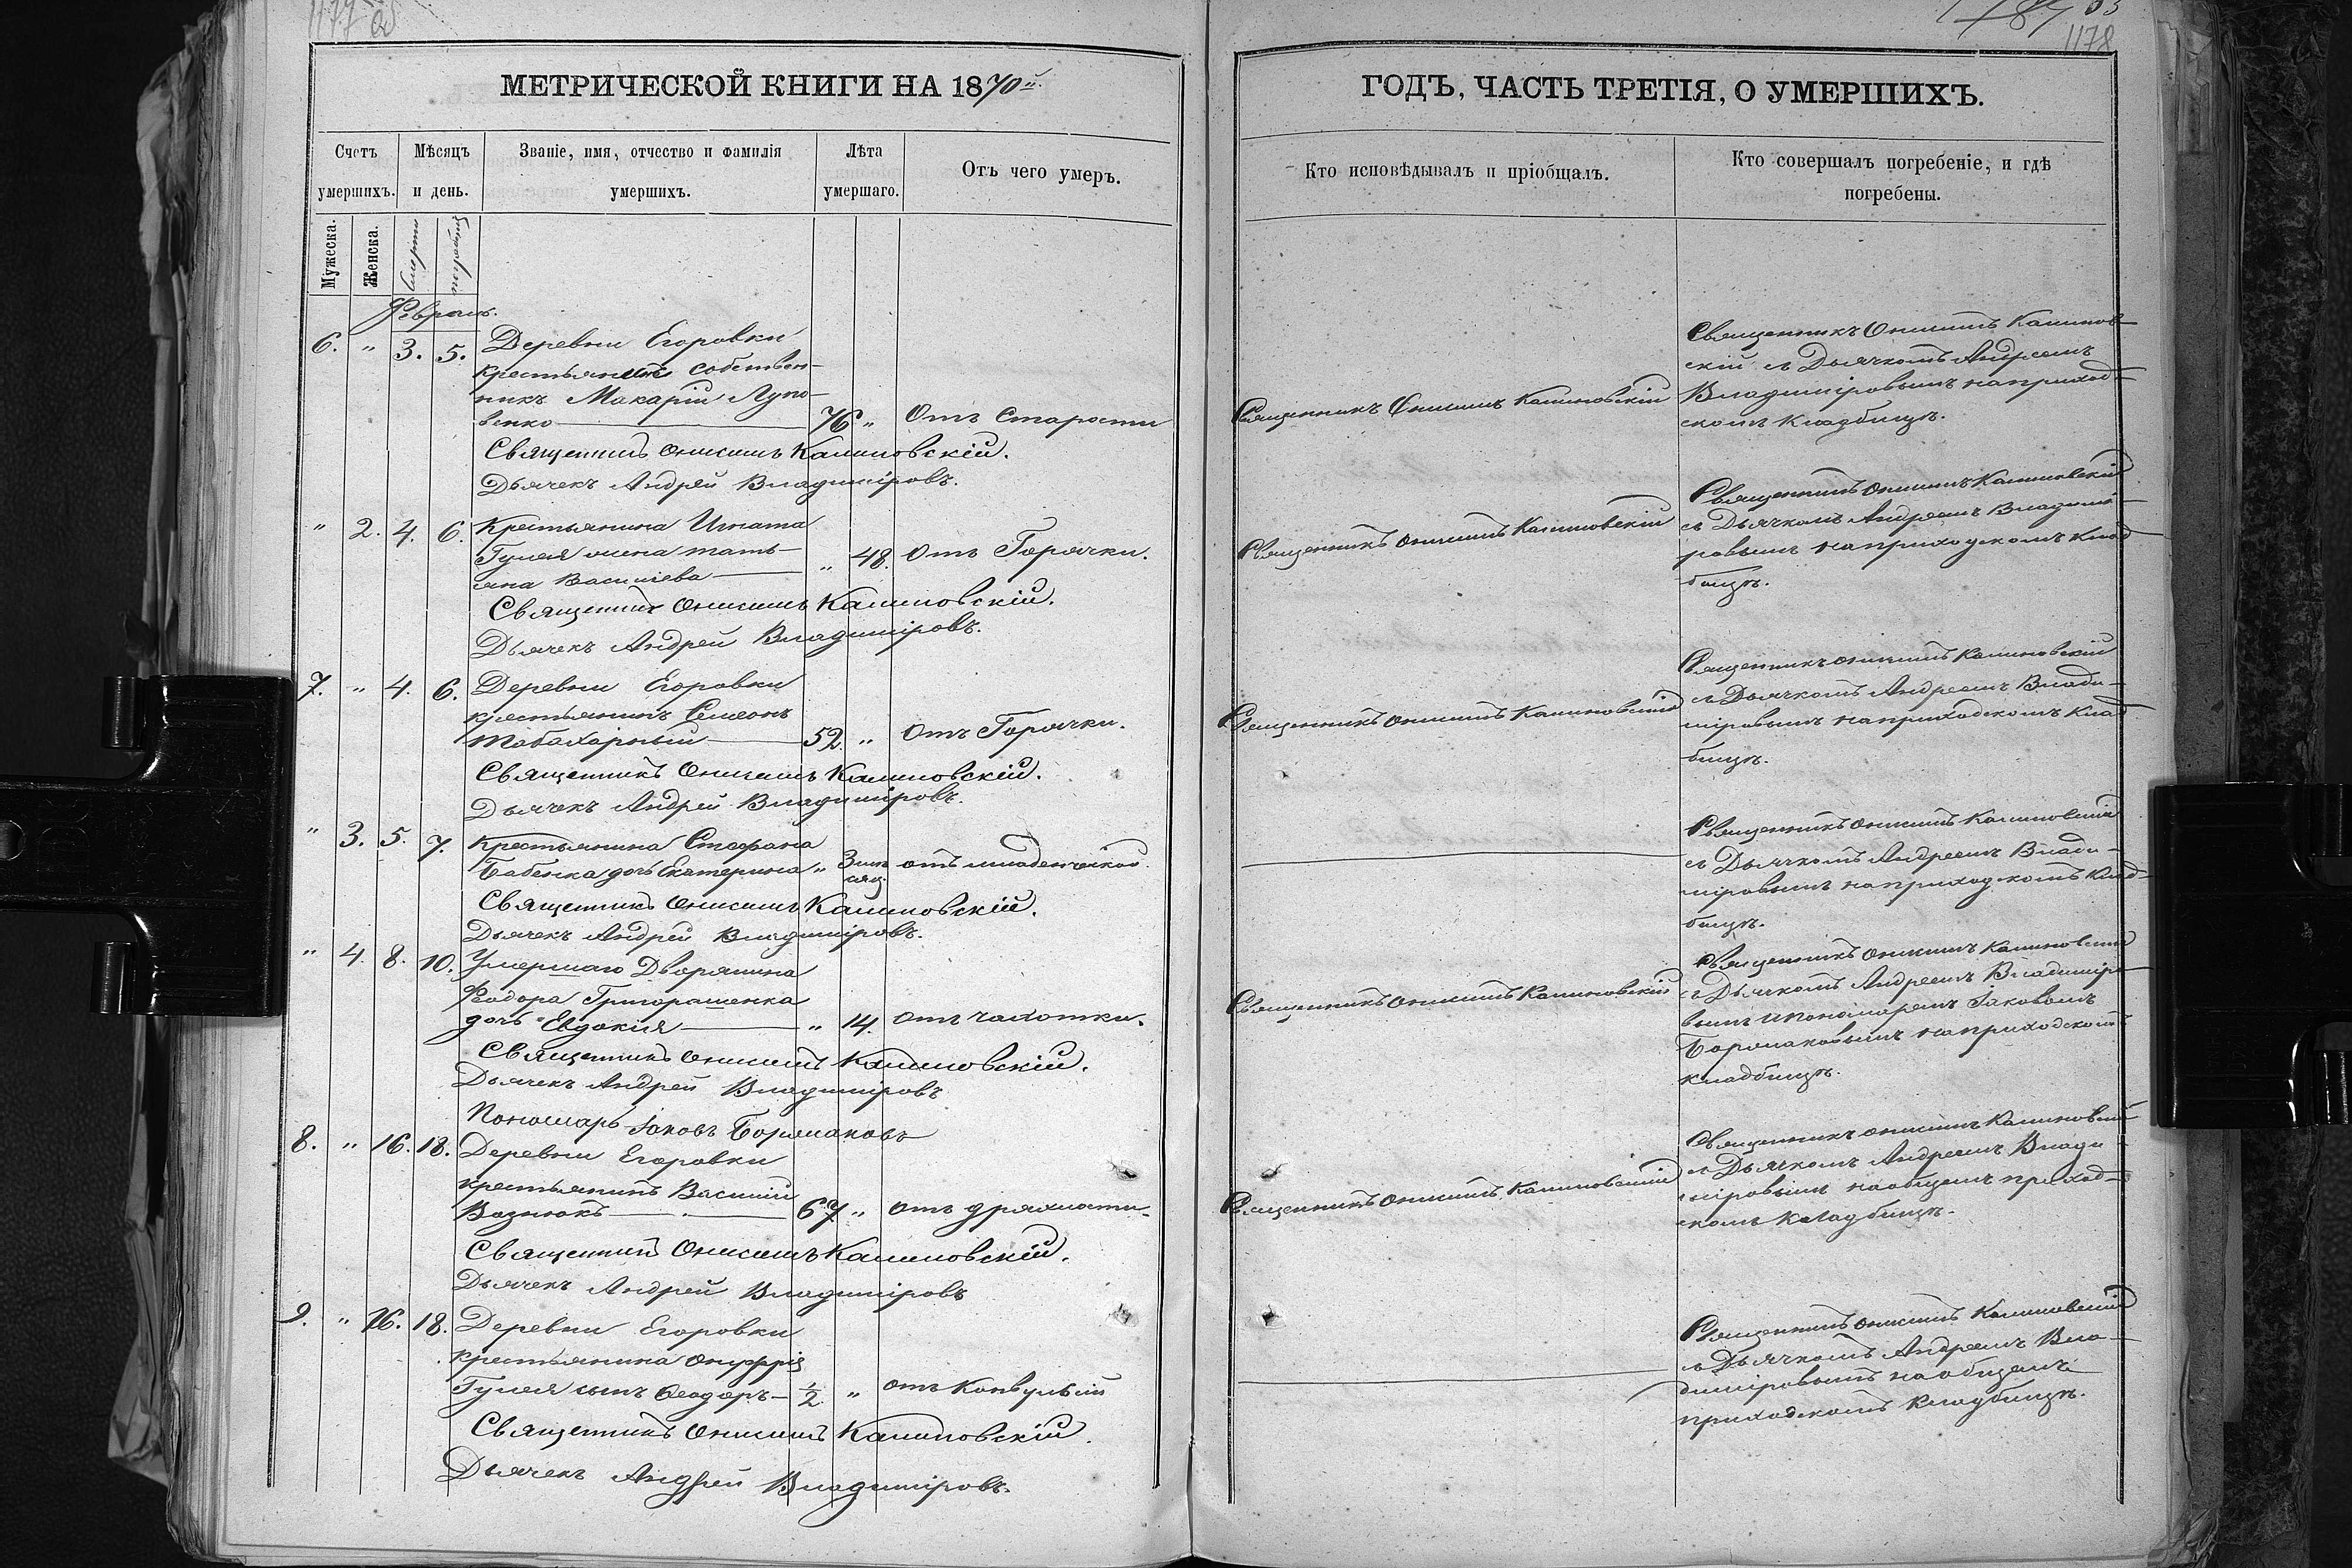 1177 об
МЕТРИЧЕСКОЙ КНИГИ НА 1870й.
Счетъ умершихъ.
Мѣсяцъ и день.
Званіе, имя, отчество и фамилія умершихъ.
Лѣта умершаго.
Отъ чего умеръ.
Мужеска.
Женска.
Смерти
погребенія
Февраль.
6. " 3. 5. Деревни Егоровки
крестьянинъ собствен-
никъ Макарій Лупо-
венко 76 " Отъ Старости
Священникъ Онисимъ Калиновскій.
Дьячекъ Андрей Владиміровъ.
" 2. 4. 6. Крестьянина Игната
Гулея жена Тать-
яна Васильева " 48. Отъ Горячки.
Священникъ Онисимъ Калиновскій.
Дьячекъ Андрей Владиміровъ.
7. " 4. 6. Деревни Егоровки
крестьянинъ Семеонъ
Табахарный 52. " Отъ Горячки.
Священникъ Онисимъ Калиновскій.
Дьячекъ Андрей Владиміровъ.
" 3. 5. 7. Крестьянина Стефана
Бабенка дочь Екатерина " 3 мѣ-
сяц. отъ младенческой
Священникъ Онисимъ Калиновскій.
Дьячекъ Андрей Владиміровъ.
" 4. 8. 10. Умершаго Дворянина
Феодора Григорашенка
дочь Евдокія " 14. отъ чахотки.
Священникъ Онисимъ Калиновскій.
Дьячекъ Андрей Владиміровъ
Пономарь Іаковъ Бормаковъ
8. " 16. 18. Деревни Егоровки
крестьянинъ Василій
Вознюкъ 67 " отъ дряхлости.
Священникъ Онисимъ Калиновскій.
Дьячекъ Андрей Владиміровъ
9. " 16. 18. Деревни Егоровки
крестьянина Онуфрія
Гулея сынъ Феодоръ 1/2 " отъ Конвульсій
Священникъ Онисимъ Калиновскій.
Дьячекъ Андрей Владиміровъ.
1178
ГОДЪ, ЧАСТЬ ТРЕТІЯ, О УМЕРШИХЪ.
Кто исповѣдывалъ и пріобщалъ.
Кто совершалъ погребеніе, и гдѣ
погребены.
Священникъ Онисимъ Калиновскій
Священникъ Онисимъ Калинов-
скій съ Дьячкомъ Андреемъ
Владиміровымъ на приход-
скомъ Кладбищѣ.
Священникъ Онисимъ Калиновскій
Священникъ Онисимъ Калиновскій
съ Дьячкомъ Андреемъ Владимі-
ровымъ на приходскомъ Клад-
бищѣ.
Священникъ Онисимъ Калиновскій
Священникъ Онисимъ Калиновскій
съ Дьячкомъ Андреемъ Влади-
міровымъ на приходскомъ Клад-
бищѣ.
Священникъ Онисимъ Калиновскій
съ Дьячкомъ Андреемъ Влади-
міровымъ на приходскомъ Клад-
бищѣ.
Священникъ Онисимъ Калиновскій
Священникъ Онисимъ Калиновскій
съ Дьячкомъ Андреемъ Владиміро-
вымъ и пономаремъ Іаковомъ
Бормаковымъ на приходскомъ
кладбищѣ.
Священникъ Онисимъ Калиновскій
Священникъ Онисимъ Калиновскій
съ Дьячкомъ Андреемъ Влади-
міровымъ на общемъ приход-
скомъ Кладбищѣ.
Священникъ Онисимъ Калиновскій
съ Дьячкомъ Андреемъ Вла-
диміровымъ на общемъ
приходскомъ Кладбищѣ.